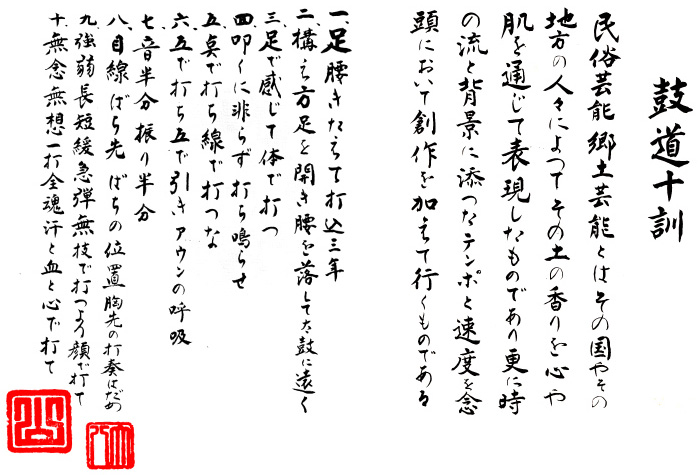 鼓道十訓
民俗芸能郷土芸能とはその国やその
地方の人々によってその土の香りを心や
肌を通じて表現したものであり更に時
の流と背景に添ったテンポと速度を念
頭において創作を加えて行くものである
一、足腰きたえて打込三年
二、構え方足を開き腰を落して太鼓に遠く
三、足で感じて体で打つ
四、叩くに非らず打ち鳴らせ
五、点で打ち線で打つな
六、五で打ち五で引きアウンの呼吸
七、音半分振り半分
八、目線ばち先ばちの位置胸先の打奏はだめ
九、強弱長短緩急弾無技で打つより顔で打て
十、無念無想一打全魂汗と血と心で打て